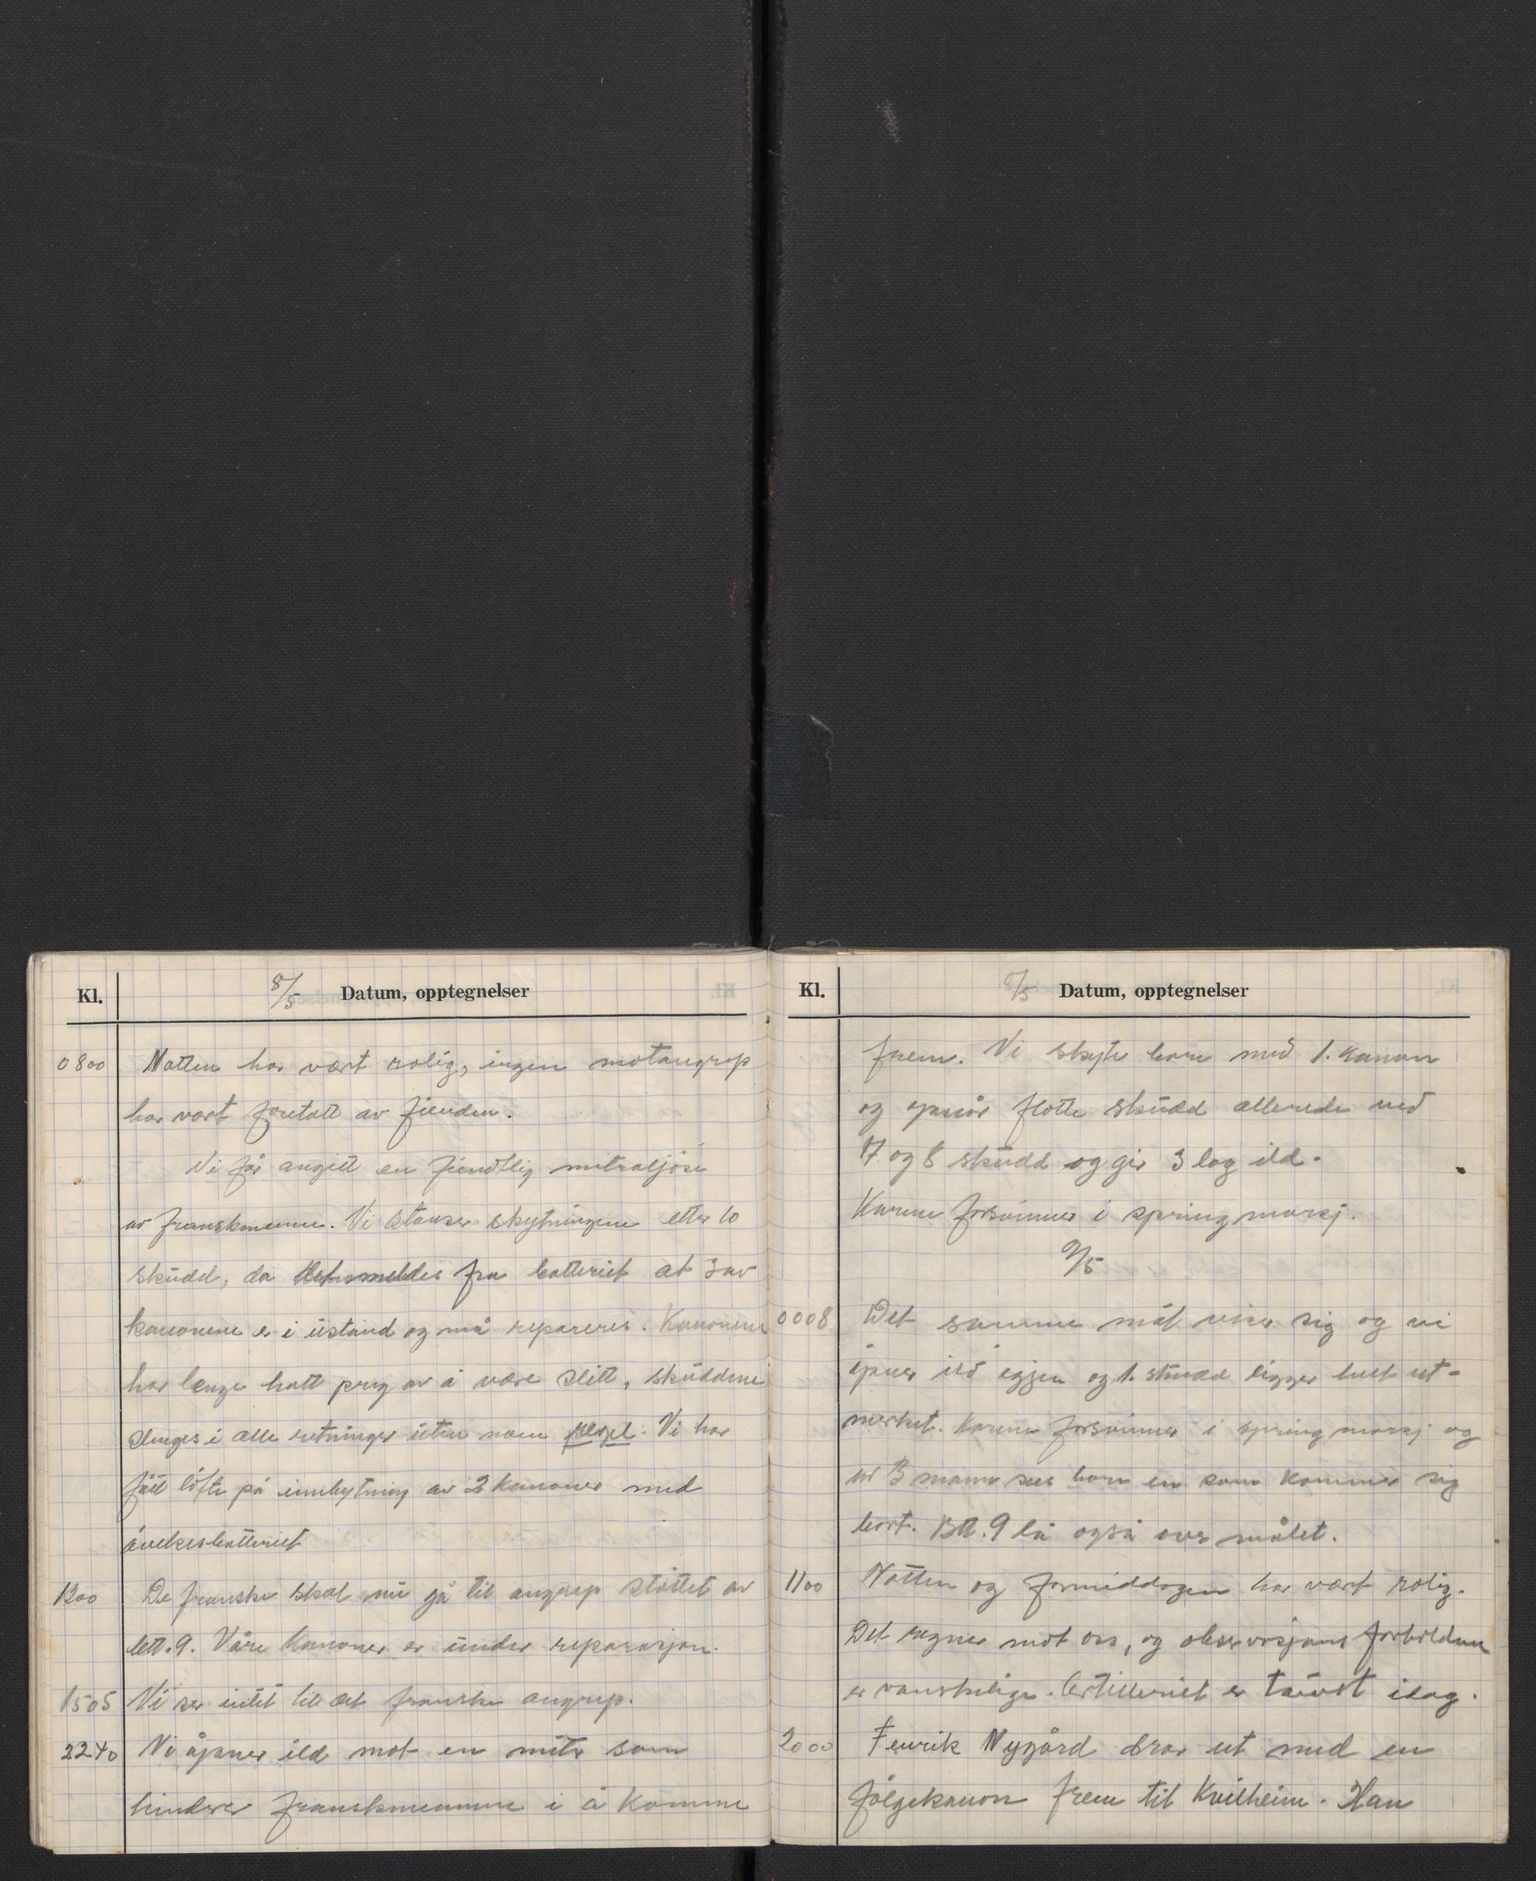 Kl. 8/5 Datum, opptegnelser
0800 Natten har vært rolig, ingen motangrep
har vært foretatt av fienden.
Vi får angitt en fiendtlig mitraljöse
av franskmennene. Vi stanser skytningen etter 10
skudd, da det meldes fra batteriet at 3 av
kanonene er i ustand og må repareres. Kanonene
har lenge hatt preg av å være slitt, skuddene
slenges i alle retninger uten noen regel. Vi har
fått löfte på innbytning av 2 kanoner med
övelsesbatteriet
1300 De franske skal nu gå til angrep stöttet av
batt. 9. Våre kanoner er under reparasjon.
1505 Vi ser intet til det franske angrep.
2240 Vi åpner ild mot en mitr som
hindrer franskmennene i å komme
Kl. 8/5 Datum, opptegnelser
frem. Vi skyter bare med 1. kanon
og oppnår flotte skudd allerede ved
7 og 8 skudd og gir 3 lag ild.
Karene forsvinner i spring marsj.
9/5
0008 Det samme mål viser sig og vi
åpner ild igjen og 1. skudd ligger helt ut-
merket. Karene forsvinner i spring marsj og
av 3 mann sees bare en som kommer sig
bort. Btt. 9 lå også over målet.
1100 Natten og formiddagen har vært rolig.
Det regner mot oss, og observasjons forholdene
er vanskelige. Artilleriet er taust idag.
2000 Fenrik Nygård drar ut med en
fölgekanon frem til Kvilheim. Han